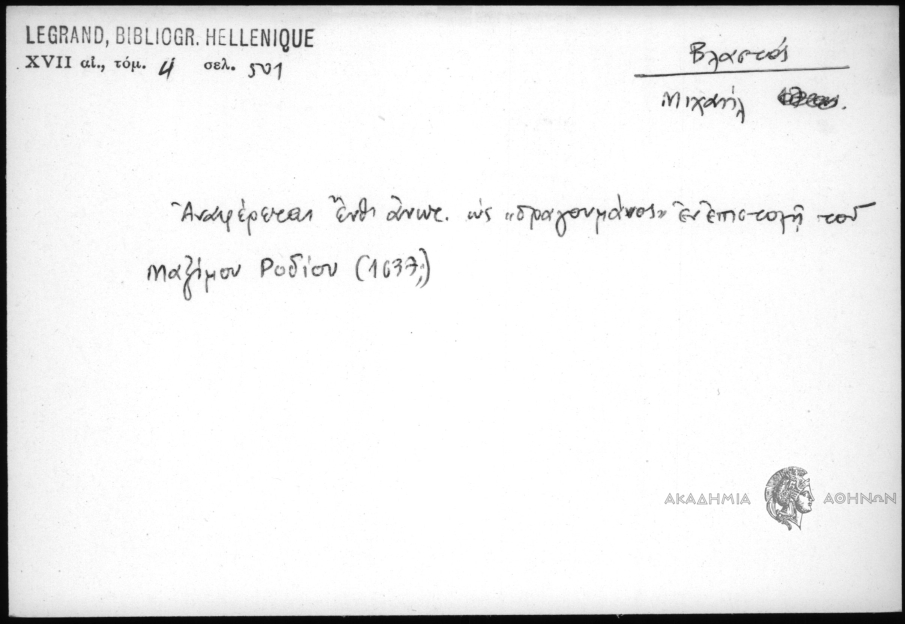 LEGRAND, BIBLIOGR. HELLENIQUE
XVII αἰ., τόμ. 4 σελ. 501
Βλαστός
Μιχαήλ
Ἀναφέρεται ἔνθ' ἄνωτ. ὡς «δραγουμάνος» ἐν ἐπιστολῇ τοῦ
Μαξίμου Ροδίου (1637;)
ΑΚΑΔΗΜΙΑ ΑΘΗΝΩΝ